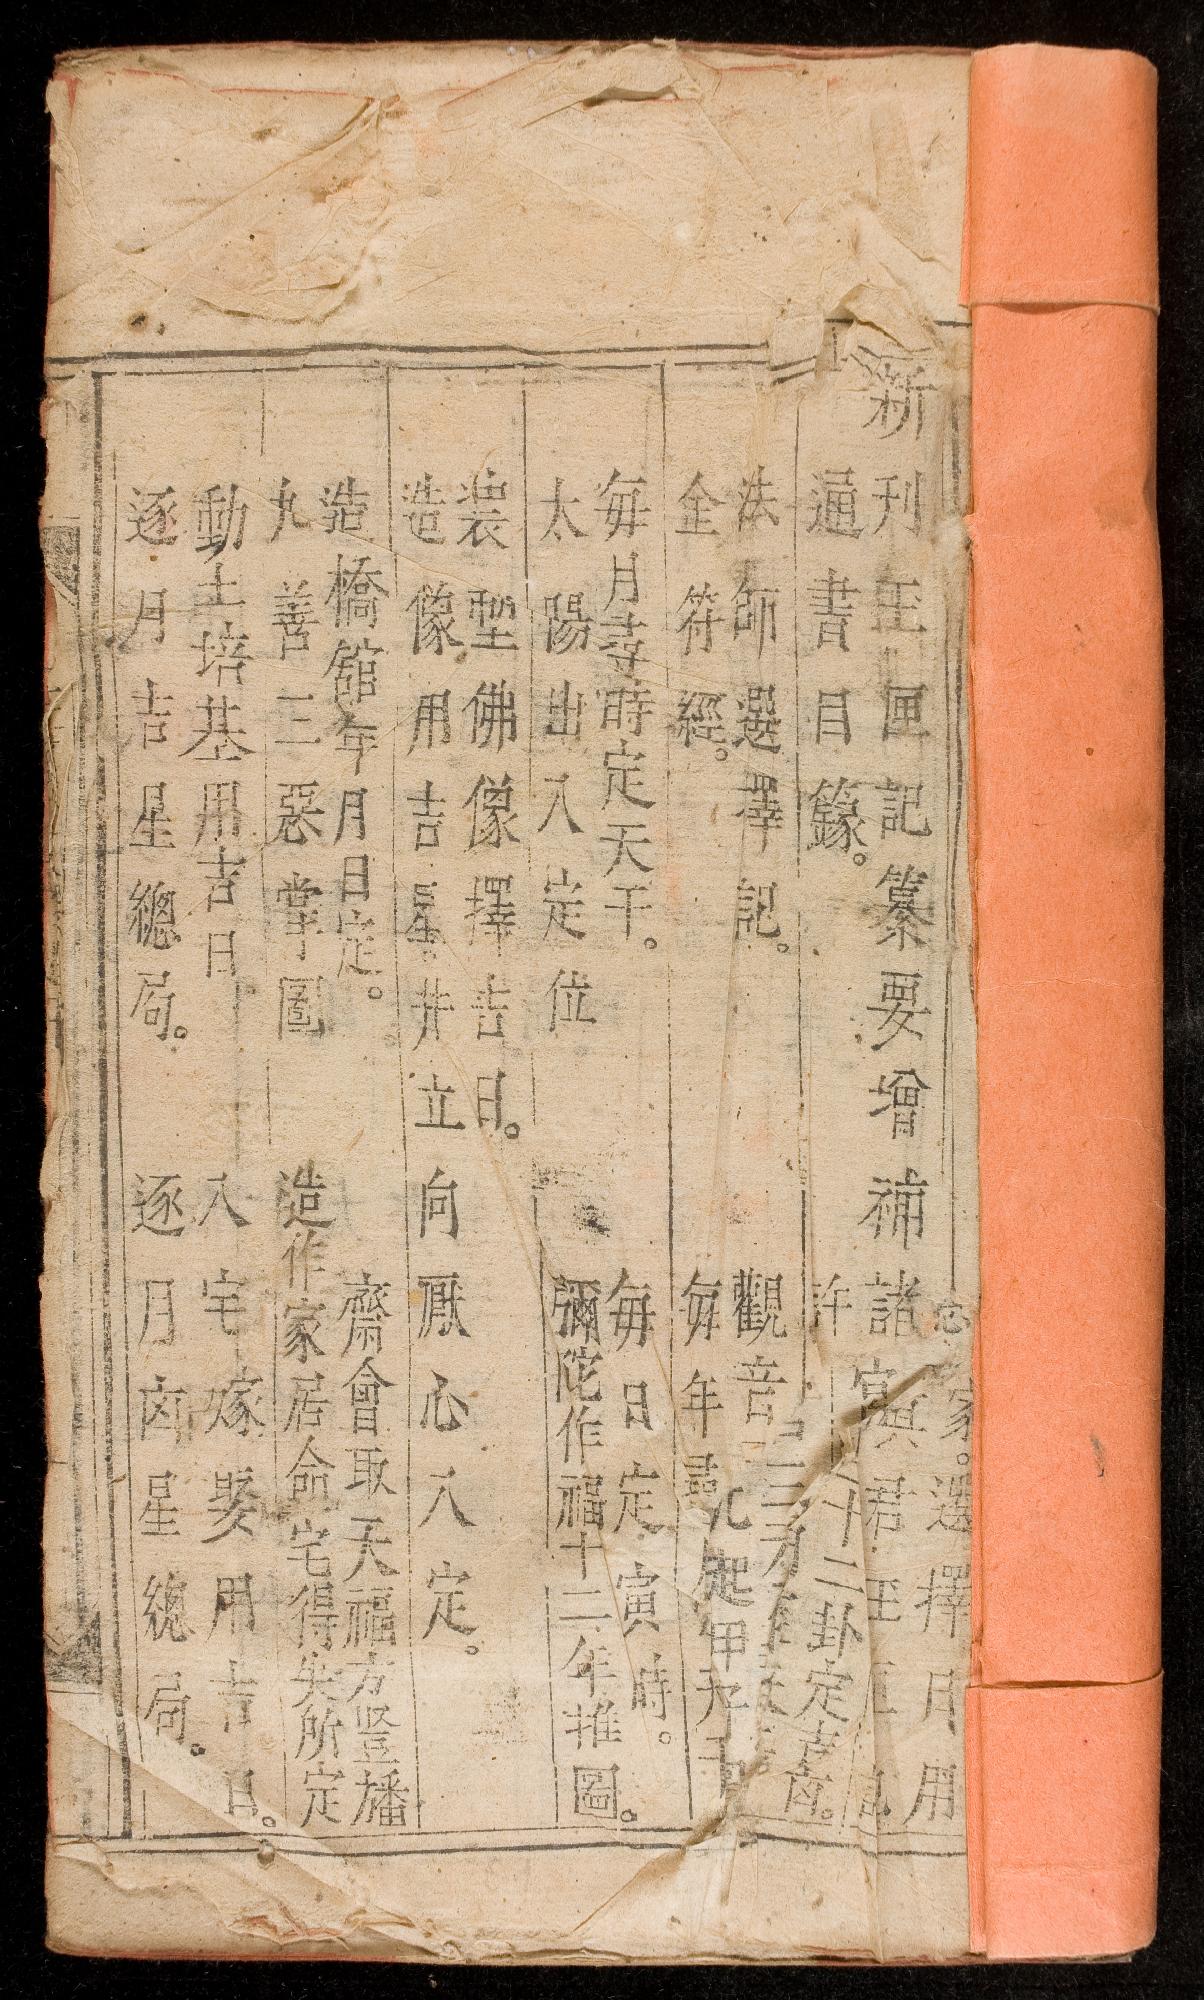 新刊玉匣記纂要增補諸家選擇日用
通書目錄。許真君玉匣記
法師選擇記。
金符經。
觀音
十二卦定吉凶。
每年
起甲子
每月寺時定天干。
每日定寅時。
太陽出入定位
彌陀作福十二年推圖。
裝塑佛像擇吉日。
造像用吉星并立向厭心入定。
造橋舘年月日定。
齋會取天福方竪播
九善三惡掌圖
造作家居命宅得失所定
動土培基用吉日。
入宅嫁娶用吉日。
逐月吉星總局。
逐月凶星總局。